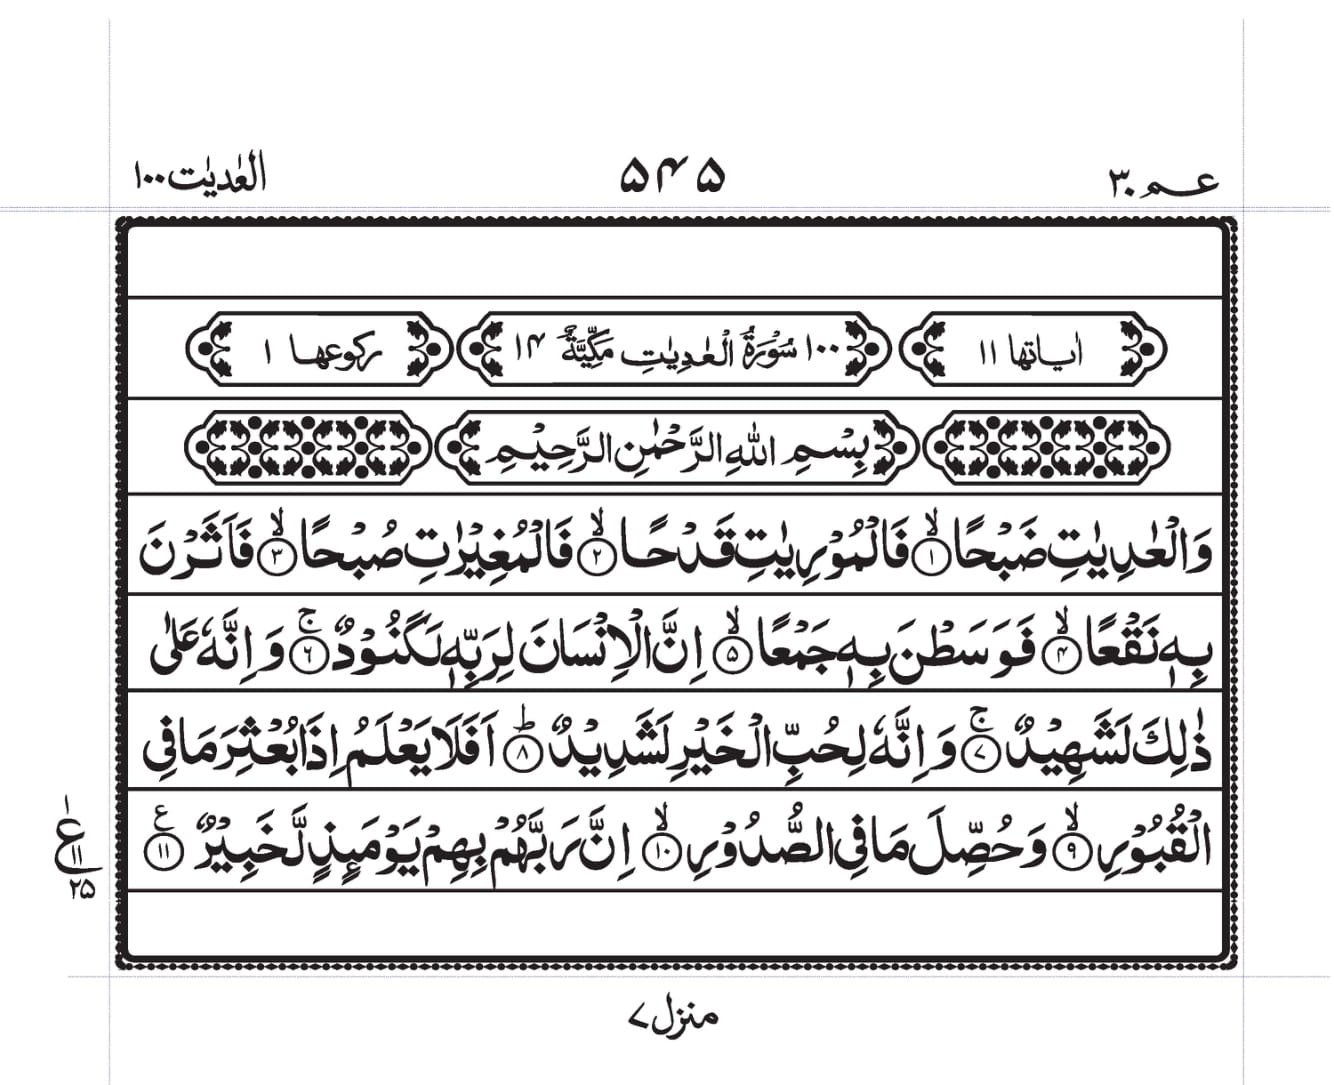 عم ۳۰ ۵۴۵ العٰدیٰت ۱۰۰
اٰیاتها ۱۱ ۱۰۰ سُوْرَةُ الْعٰدِیٰتِ مَكِّیَّةٌ ۱۴ رکوعها ۱
بِسْمِ اللهِ الرَّحْمٰنِ الرَّحِیْمِ
وَالْعٰدِیٰتِ ضَبْحًا ۙ﴿۱﴾ فَالْمُوْرِیٰتِ قَدْحًا ۙ﴿۲﴾ فَالْمُغِیْرٰتِ صُبْحًا ۙ﴿۳﴾ فَاَثَرْنَ
بِهٖ نَقْعًا ۙ﴿۴﴾ فَوَسَطْنَ بِهٖ جَمْعًا ۙ﴿۵﴾ اِنَّ الْاِنْسَانَ لِرَبِّهٖ لَكَنُوْدٌ ۚ﴿۶﴾ وَاِنَّهٗ عَلٰی
ذٰلِكَ لَشَهِیْدٌ ۚ﴿۷﴾ وَاِنَّهٗ لِحُبِّ الْخَیْرِ لَشَدِیْدٌ ؕ﴿۸﴾ اَفَلَا یَعْلَمُ اِذَا بُعْثِرَ مَا فِی
الْقُبُوْرِ ۙ﴿۹﴾ وَحُصِّلَ مَا فِی الصُّدُوْرِ ۙ﴿۱۰﴾ اِنَّ رَبَّهُمْ بِهِمْ یَوْمَىِٕذٍ لَّخَبِیْرٌ ﴿۱۱﴾ع
۱
ع
۱۱
۲۵
منزل ۷